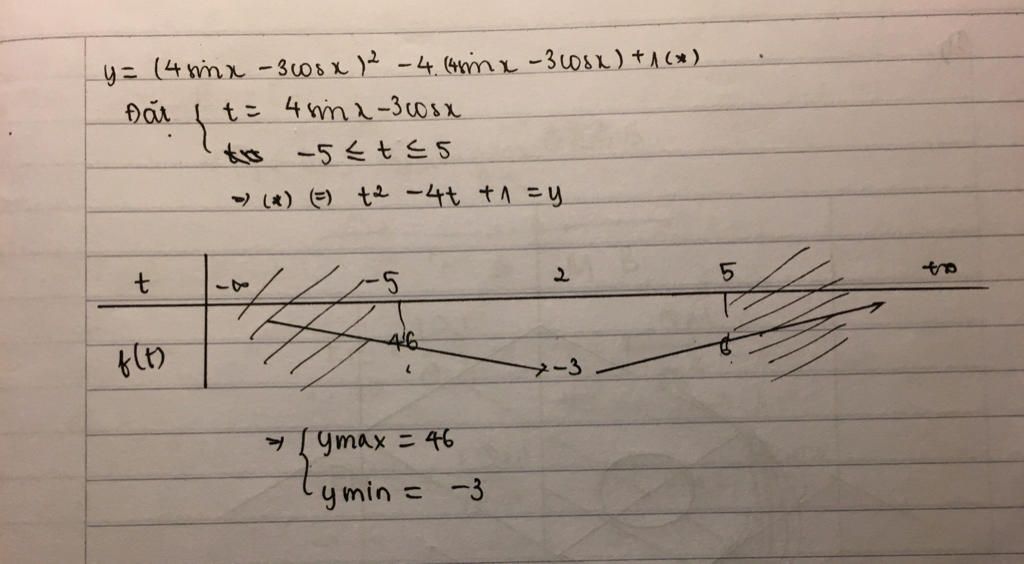 y = (4sinx - 3cosx)² - 4.(4sinx - 3cosx) + 1 (*)
Đặt { t = 4sinx - 3cosx
-5 ≤ t ≤ 5
⇒ (*) (=) t² - 4t + 1 = y
t -∞ -5 2 5 +∞
f(t) 46 -3 6
⇒ { ymax = 46
ymin = -3